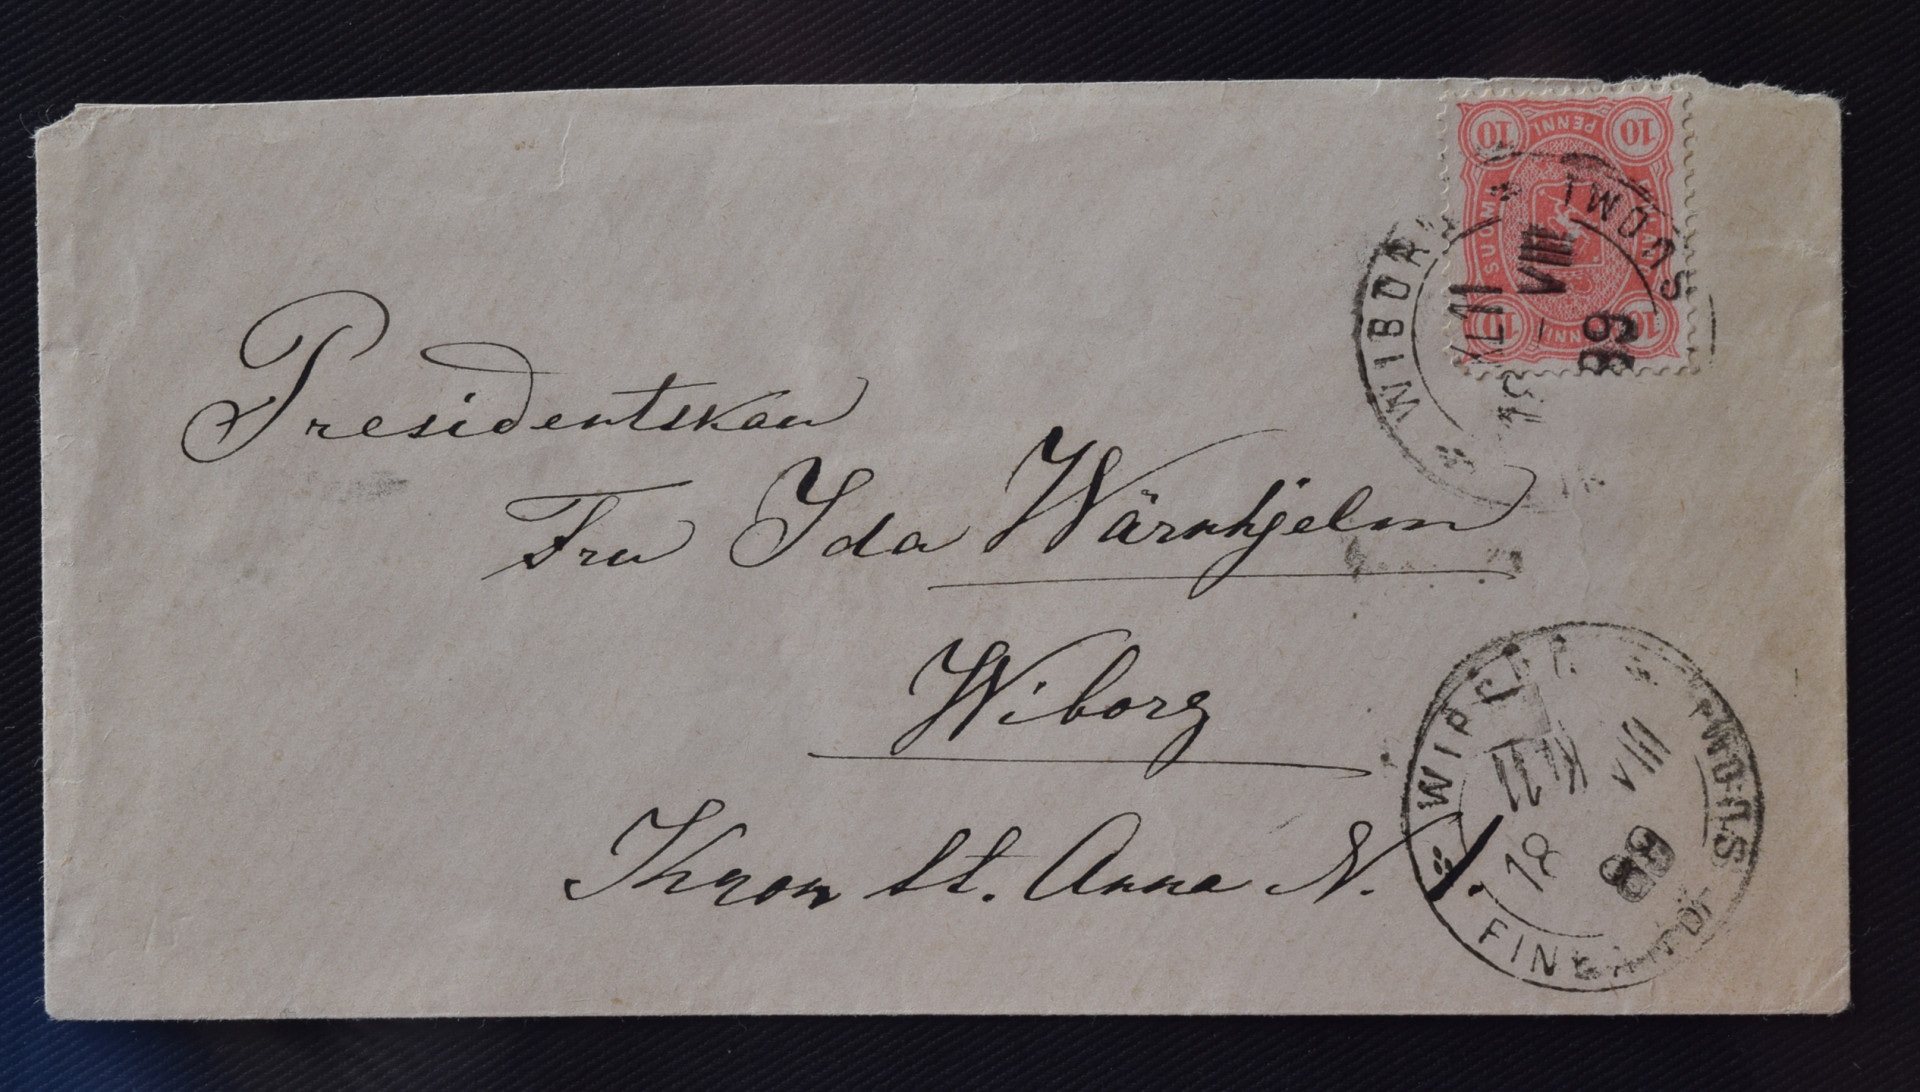 Presidentskan
Fru Ida Wärnhjelm
Wiborg
St. Anna N. 1.
10 PENNI 10
SUOMI
10 10
WIBORG
SUOMI
VIII
89
WIBORG
SUOMI
KL 11
18 VIII
89
FINLAND